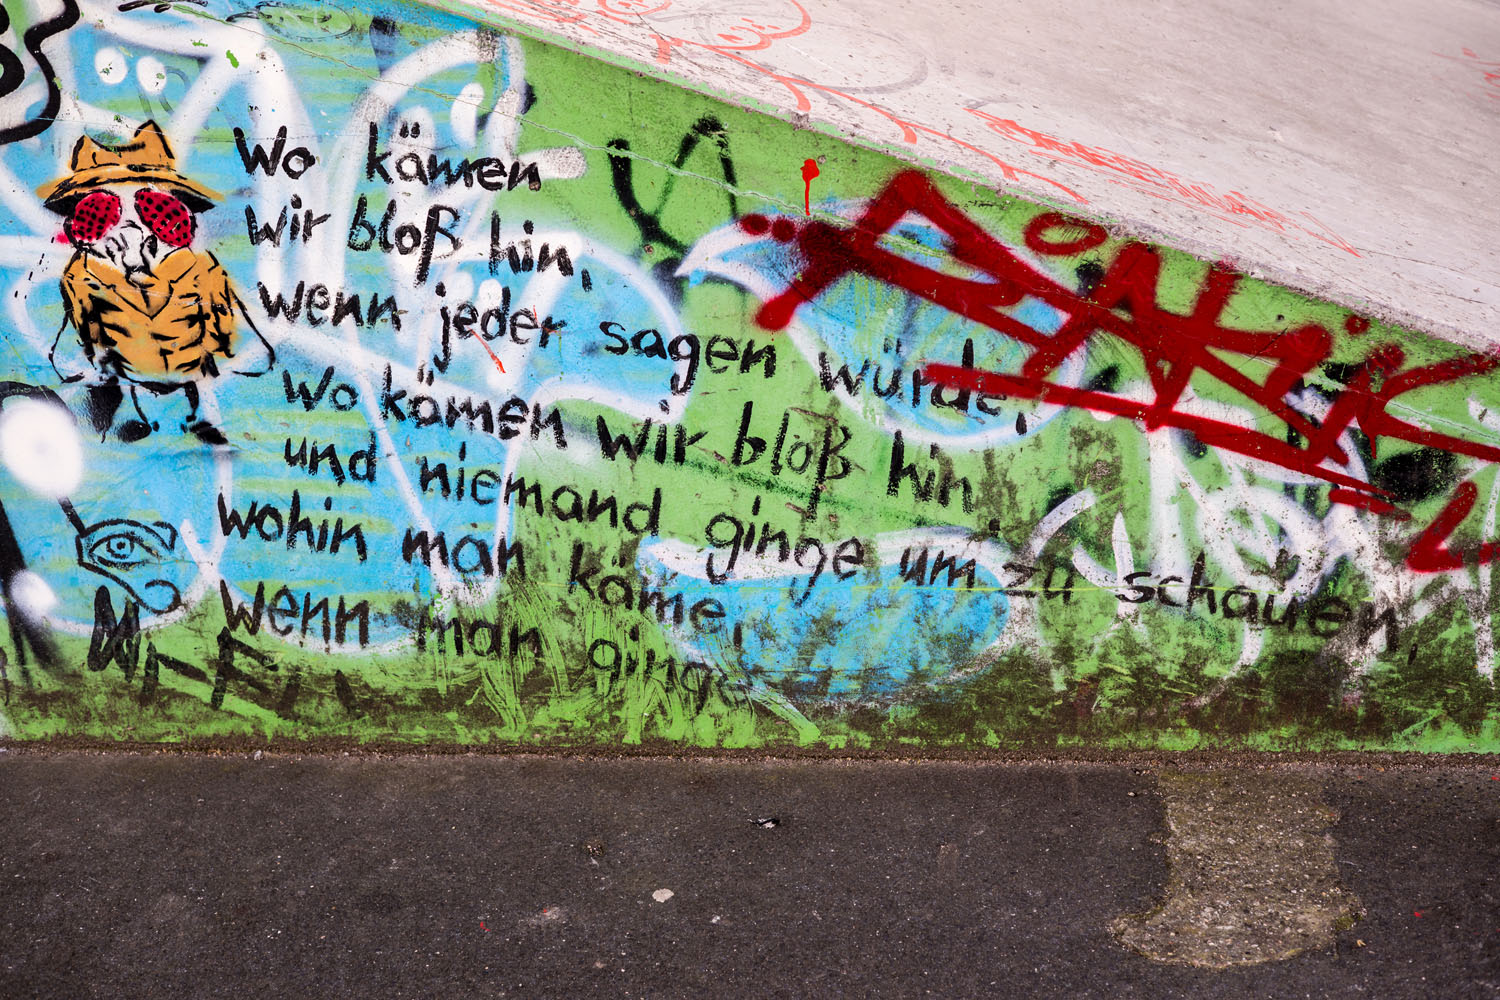 Wo kämen
wir bloß hin,
wenn jeder sagen würde,
wo kämen wir bloß hin,
und niemand ginge um zu schauen,
wohin man käme,
wenn man ginge